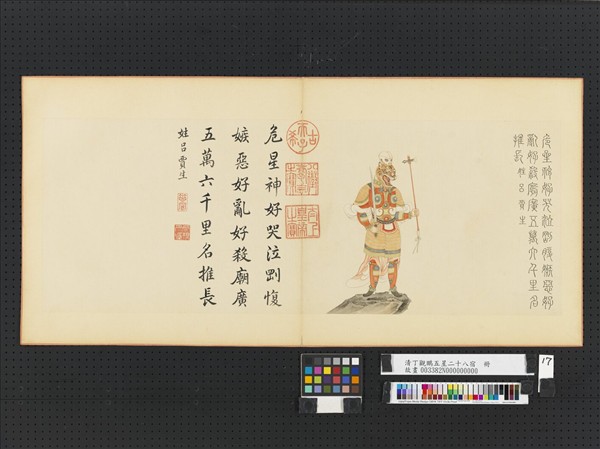 危星神好哭泣剛愎嫉惡好
亂好殺廟廣五萬六千里名
推長 姓呂賈生
古希天子
八徵耄念之寶
太上皇帝之寶
危星神好哭泣剛愎
嫉惡好亂好殺廟廣
五萬六千里名推長
姓呂賈生
清丁觀鵬五星二十八宿 冊
故畫 003382N000000000
17